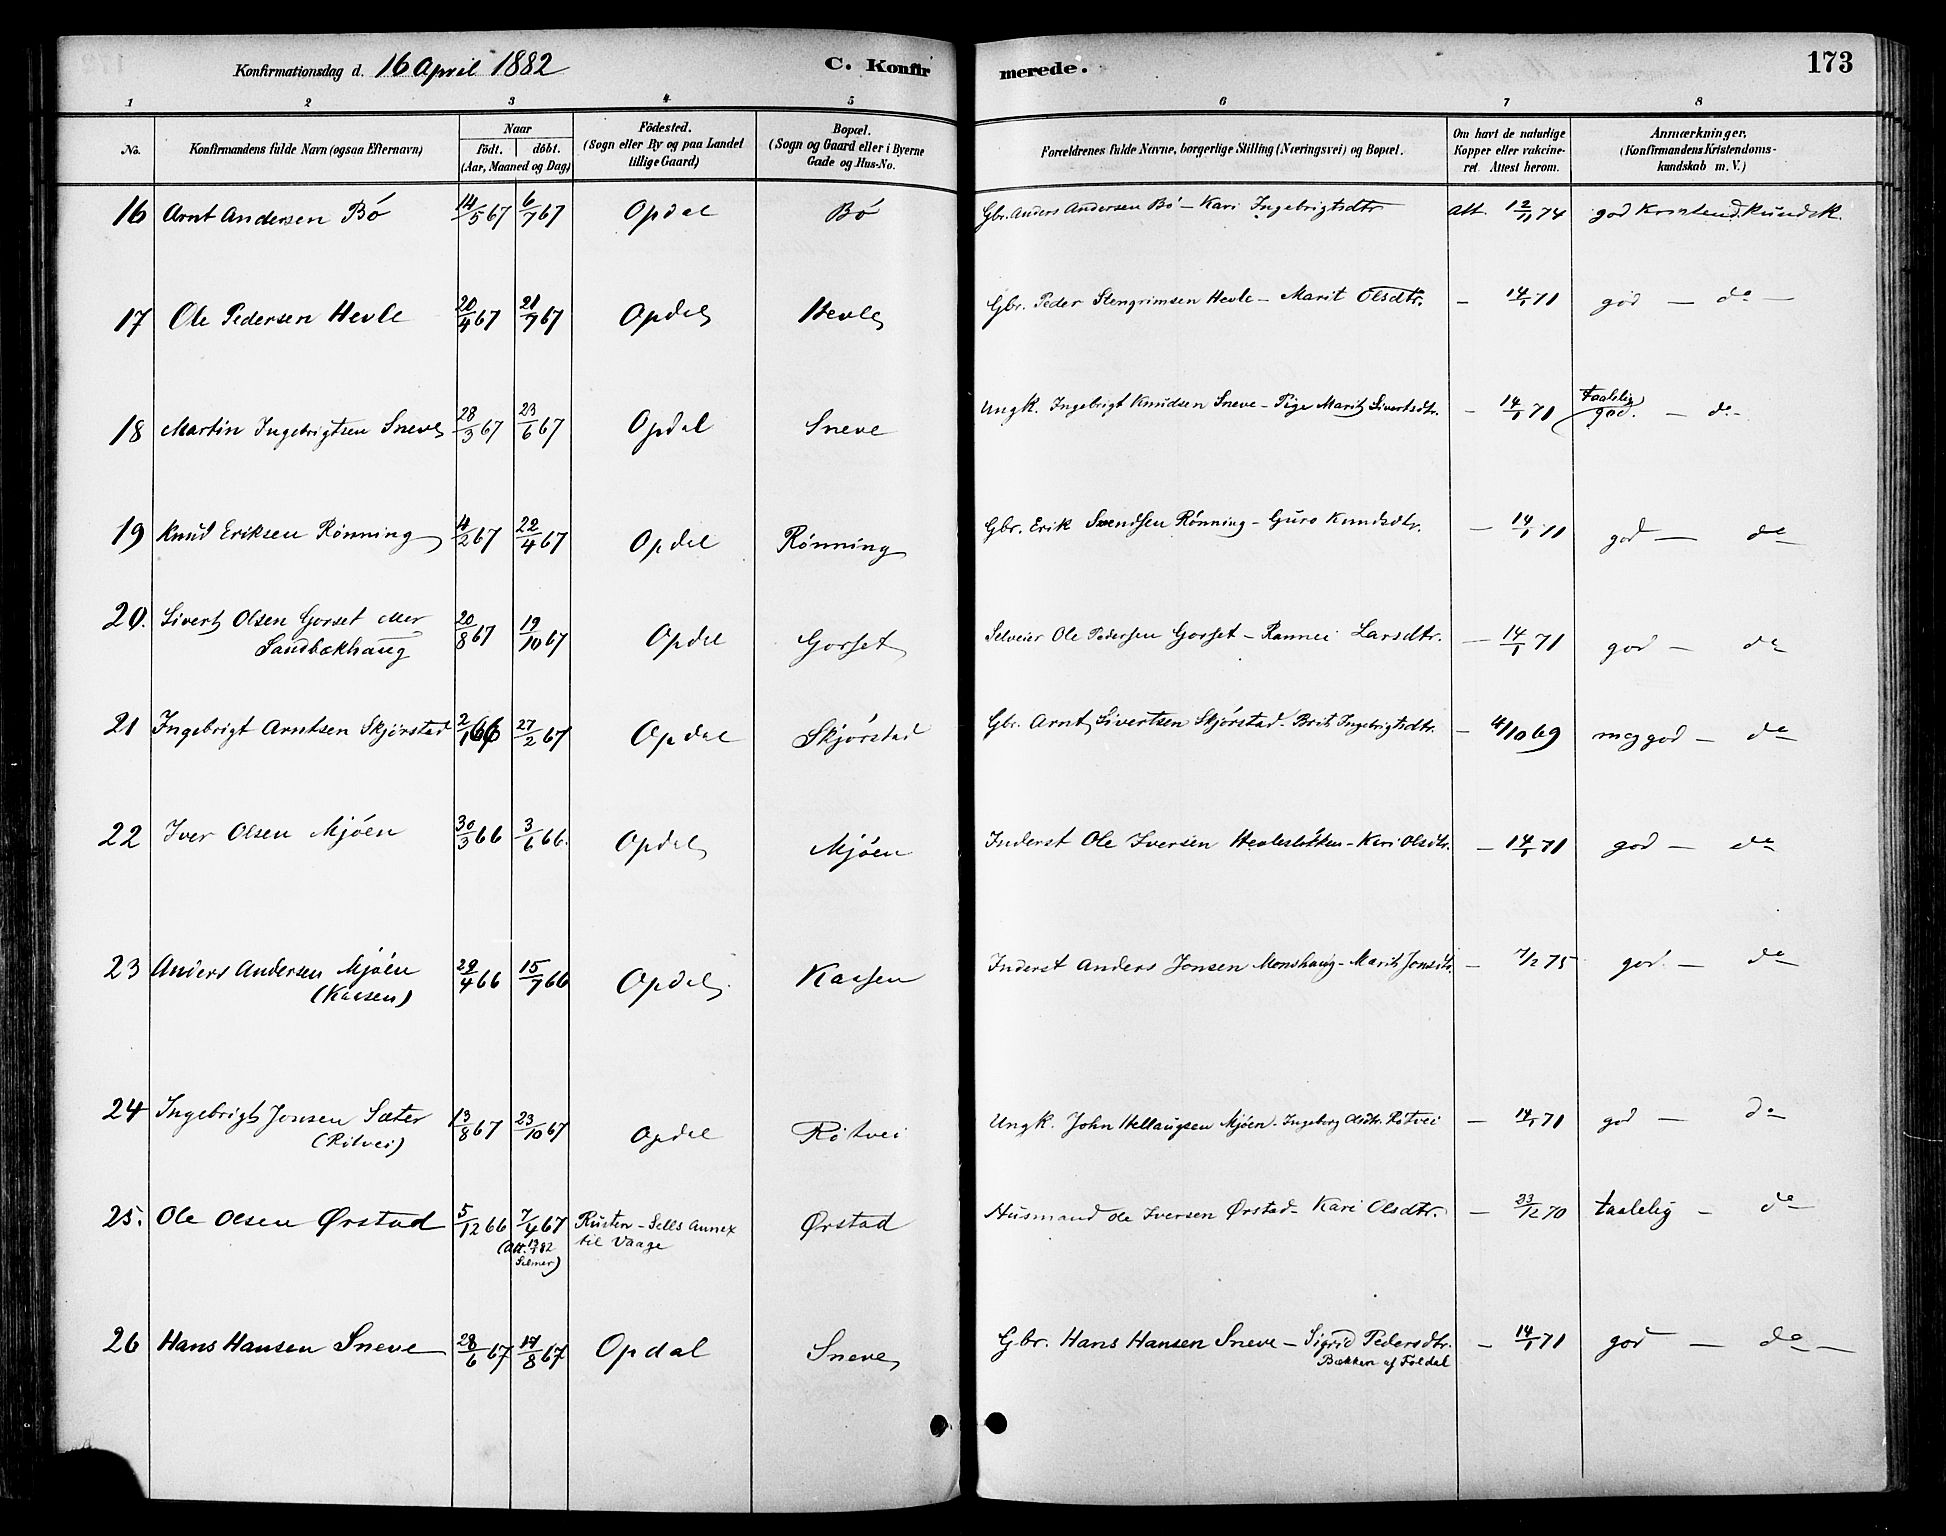 Konfirmationsdag d. 16 April 1882 C. Konfirmerede. 173
1 2 3 4 5 6 7 8
No. Konfirmandens fulde Navn (ogsaa Efternavn) Naar födt. döbt. (Aar, Maaned og Dag) Födested. (Sogn eller By og paa Landet tillige Gaard) Bopæl. (Sogn og Gaard eller i Byerne Gade og Hus-No. Forældrenes fulde Navne, borgerlige Stilling (Næringsvei) og Bopæl. Om havt de naturlige Kopper eller vakcineret. Attest herom. Anmærkninger. (Konfirmandens Kristendomskundskab m. V.)
16 Arnt Andersen Bö 14/5 67 6/7 67 Opdal Bö Gbr. Anders Andersen Bö – Kari Ingebrigtsdtr att. 12/11 74 god Kristend.kundsk.
17 Ole Pedersen Hevle 20/4 67 21/7 67 Opdal Hevle Gbr. Peder Stengrimsen Hevle – Marit Olsdtr. – 14/1 71 god – do –
18 Martin Ingebrigtsen Sneve 28/3 67 23/6 67 Opdal Sneve Ungk. Ingebrigt Knudsen Sneve – Pige Marit Sivertsdtr. – 14/1 71 taalelig god. – do –
19 Knud Eriksen Rönning 4/2 67 22/4 67 Opdal Rönning Gbr. Erik Svendsen Rönning – Guro Knudsdtr. – 14/1 71 god – do
20. Sivert Olsen Gorset eller 20/8 67 19/10 67 Opdal Gorset Selveier Ole Pedersen Gorset – Rannei Larsdtr. – 14/1 71 god – do
Sandbækhaug
21 Ingebrigt Arntsen Skjörstad 2/1 66 27/2 67 Opdal Skjörstad Gbr. Arnt Sivertsen Skjörstad – Brit Ingebrigtsdtr. – 4/10 69 meg god – do
22 Iver Olsen Mjöen 30/3 66 3/6 66. Opdal Mjöen Inderst Ole Iversen Hevleslötten – Kari Olsdtr. – 14/1 71 god – do
23 Anders Andersen Mjöen 29/4 66 15/7 66 Opdal. Kaasen Inderst Anders Jonsen Monshaug – Marit Jonsdtr. – 7/12 75 god – do
(Kaasen)
24 Ingebrigt Jonsen Sæter 13/8 67 23/10 67 Opdal Rötvei Ungk. John Hellaugsen Mjöen – Ingeborg Olsdtr. Rötvei – 14/1 71 god – do
(Rötvei)
25. Ole Olsen Ørstad 5/12 66 7/4 67 Rusten – Sells Annex Ørstad Husmand Ole Iversen Ørstad – Kari Olsdtr. – 23/12 70 taalelig – do
til Vaage
26 Hans Hansen Sneve 28/6 67 17/8 67 Opdal Sneve Gbr. Hans Hansen Sneve – Sigrid Pedersdtr. – 14/1 71 god – do –
Bækken af Foldal